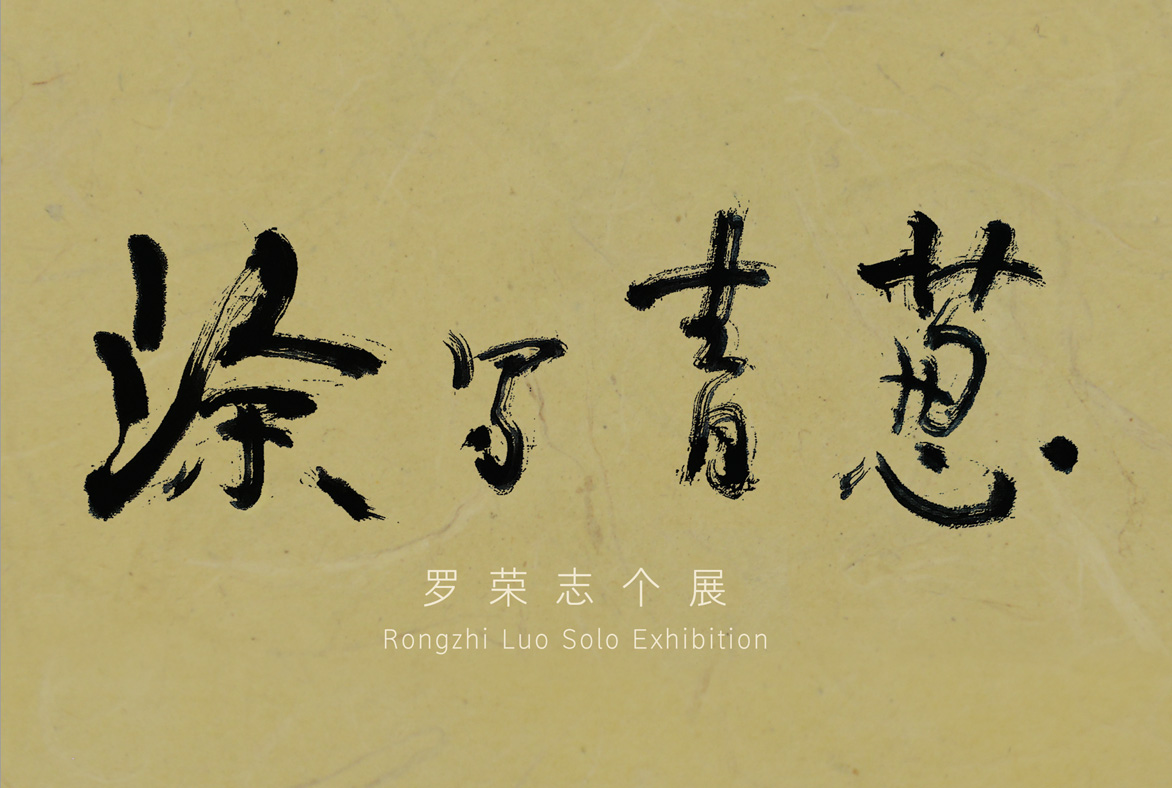 涂了青葱
罗荣志个展
Rongzhi Luo Solo Exhibition